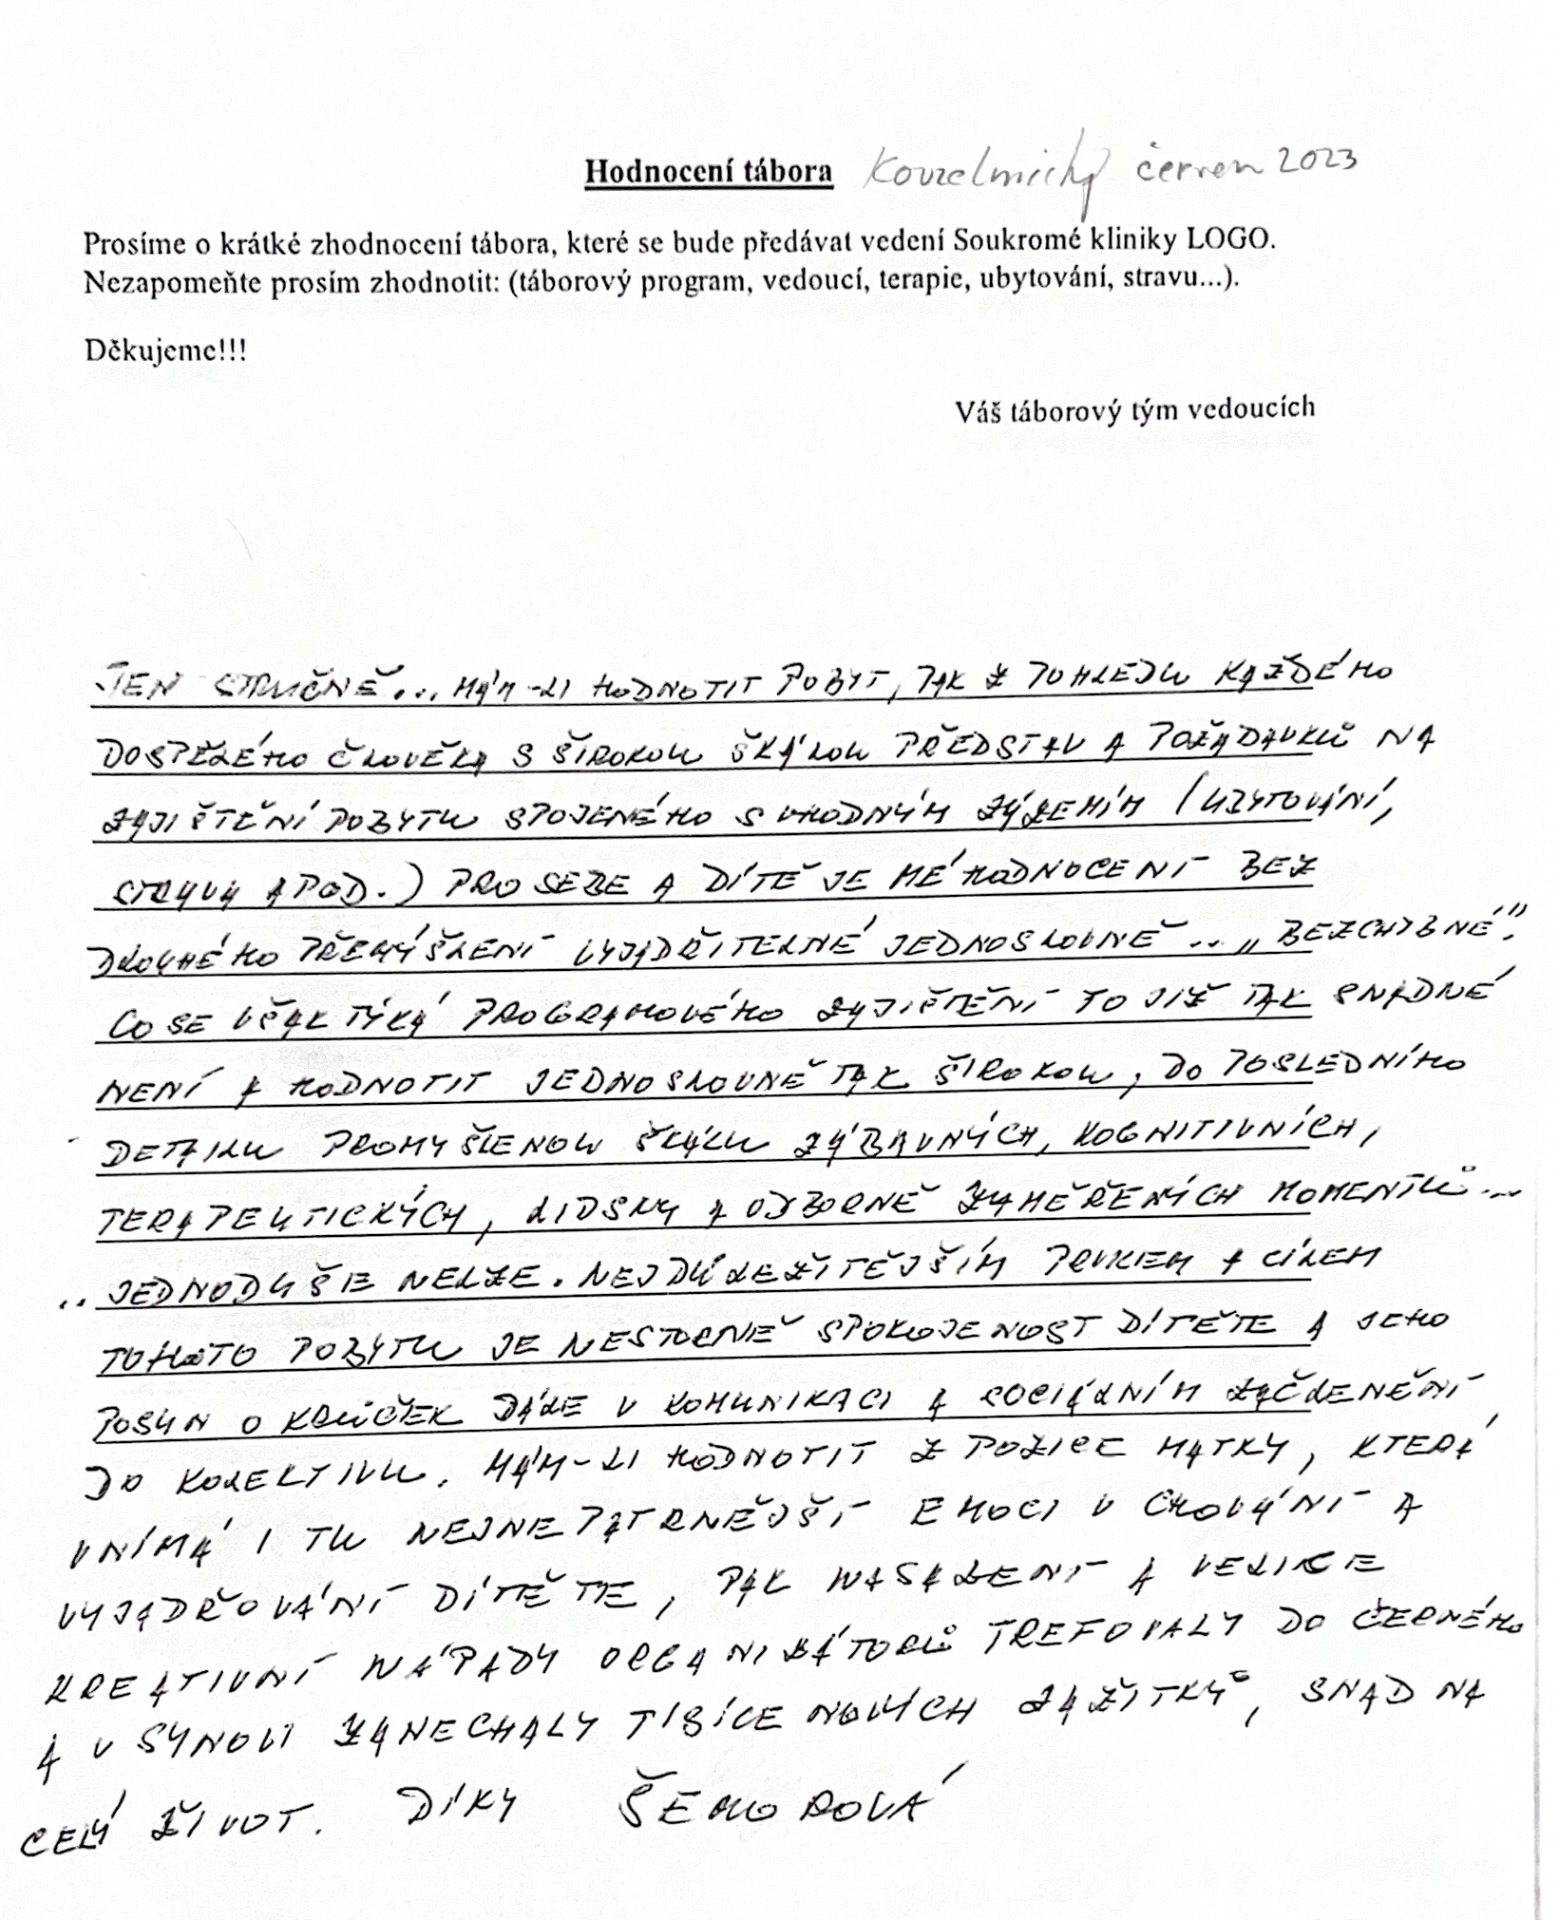 Hodnocení tábora Kouzelnický červen 2023
Prosíme o krátké zhodnocení tábora, které se bude předávat vedení Soukromé kliniky LOGO.
Nezapomeňte prosím zhodnotit: (táborový program, vedoucí, terapie, ubytování, stravu...).
Děkujeme!!!
Váš táborový tým vedoucích
JEN STRUČNĚ... MÁM-LI HODNOTIT POBYT, PAK Z POHLEDU KAŽDÉHO
DOSPĚLÉHO ČLOVĚKA S ŠIROKOU ŠKÁLOU PŘEDSTAV A POŽADAVKŮ NA
ZAJIŠTĚNÍ POBYTU SPOJENÉHO S VHODNÝM ZÁZEMÍM (UBYTOVÁNÍ,
STRAVA APOD.) PRO SEBE A DÍTĚ JE MÉ HODNOCENÍ BEZ
DLOUHÉHO PŘEMÝŠLENÍ VYJÁDŘITELNÉ JEDNOSLOVNĚ... „BEZCHYBNÉ".
CO SE VŠAK TÝKÁ PROGRAMOVÉHO ZAJIŠTĚNÍ TO JIŽ TAK SNADNÉ
NENÍ A HODNOTIT JEDNOSLOVNĚ TAK ŠIROKOU, DO POSLEDNÍHO
DETAILU PROMYŠLENOU ŠKÁLU ZÁBAVNÝCH, KOGNITIVNÍCH,
TERAPEUTICKÝCH, LIDSKY A ODBORNĚ ZAMĚŘENÝCH MOMENTŮ...
.. JEDNODUŠE NELZE. NEJDŮLEŽITĚJŠÍM PRVKEM A CÍLEM
TOHOTO POBYTU JE NESPORNĚ SPOKOJENOST DÍTĚTE A JEHO
POSUN O KRŮČEK DÁLE V KOMUNIKACI A SOCIÁLNÍM ZAČLENĚNÍ
DO KOLEKTIVU. MÁM-LI HODNOTIT Z POZICE MATKY, KTERÁ
VNÍMÁ I TU NEJNEPATRNĚJŠÍ EMOCI V CHOVÁNÍ A
VYJADŘOVÁNÍ DÍTĚTE, PAK NASAZENÍ A VELICE
KREATIVNÍ NÁPADY ORGANIZÁTORŮ TREFOVALY DO ČERNÉHO
A V SYNOVI ZANECHALY TISÍCE NOVÝCH ZÁŽITKŮ, SNAD NA
CELÝ ŽIVOT. DÍKY